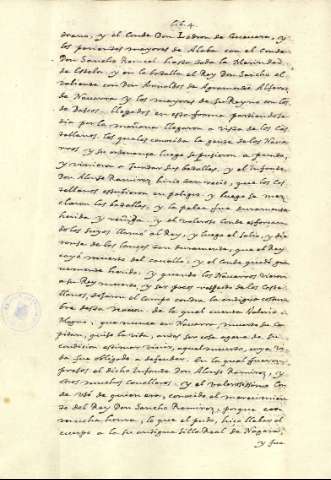 Lib. 4.
y el Conde Don Ladron de Guevara, y
los parientes mayores de Alaba con el Conde
Don Sancho hasta toda la Merindad
de Estela. y en la batalla el Rey Don Sancho el
valiente con Arnaldos de Agramonte Alferez
de Navarra y los mayores de su Reyno con los
de llegados en esta forma partiendo este
dia por la mañana llegaron a vista de los Cas
tellanos. los quales conocida la gente de los Navar
ros y su ordenanza luego se pusieron a punto,
y vinieron a juntar sus batallas. y el Infante
Don Alonso Ramirez hirio tan recio, que los Cas
tellanos estubieron en peligro. y luego se mez
claron las batallas, y la pelea fue duramente
herida y reñida. y el valeroso Conde
de los suyos llamò al Rey, y luego el salio, y
ronse de las lanças tan duramente, que el Rey
cayò muerto del cavallo. y el Conde quedò gra
vemente herido. y quando los Navarros vieron
a su Rey muerto, y ser pocos respecto de los Caste
llanos, dejaron el campo contra la antigua costum
bre desta nacion. de la qual cuenta Valerio
que nunca en Navarro, muerto su ca
pitan, quiso la vida, antes ser cosa agena de su
condicion estimar vivir, aquel muerto, cuya vi
da fue obligado a defender. En la qual fueron
presos el dicho Infante Don Alonso Ramirez, y
otros muchos cavalleros. y el valerosissimo Con
de usò de quien era, conocido el merecimien
to del Rey Don Sancho Ramirez, porque con
mucha honra, lo que el pudo, hizo llebar el
cuerpo a la su antigua silla Real de Nagera,
y fue